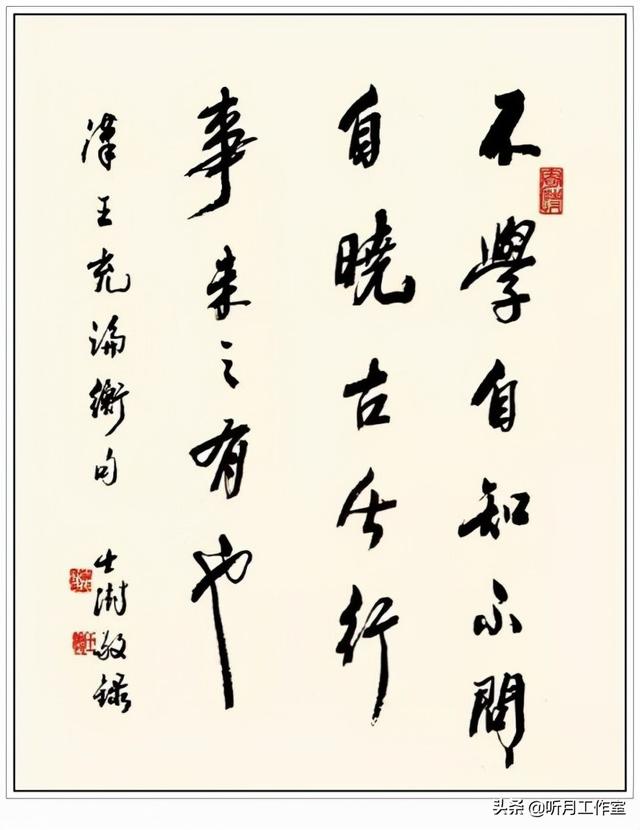 不學自知不問
自曉古今行
事未之有也
漢王充論衡句
士澍敬録
头条 @听月工作室